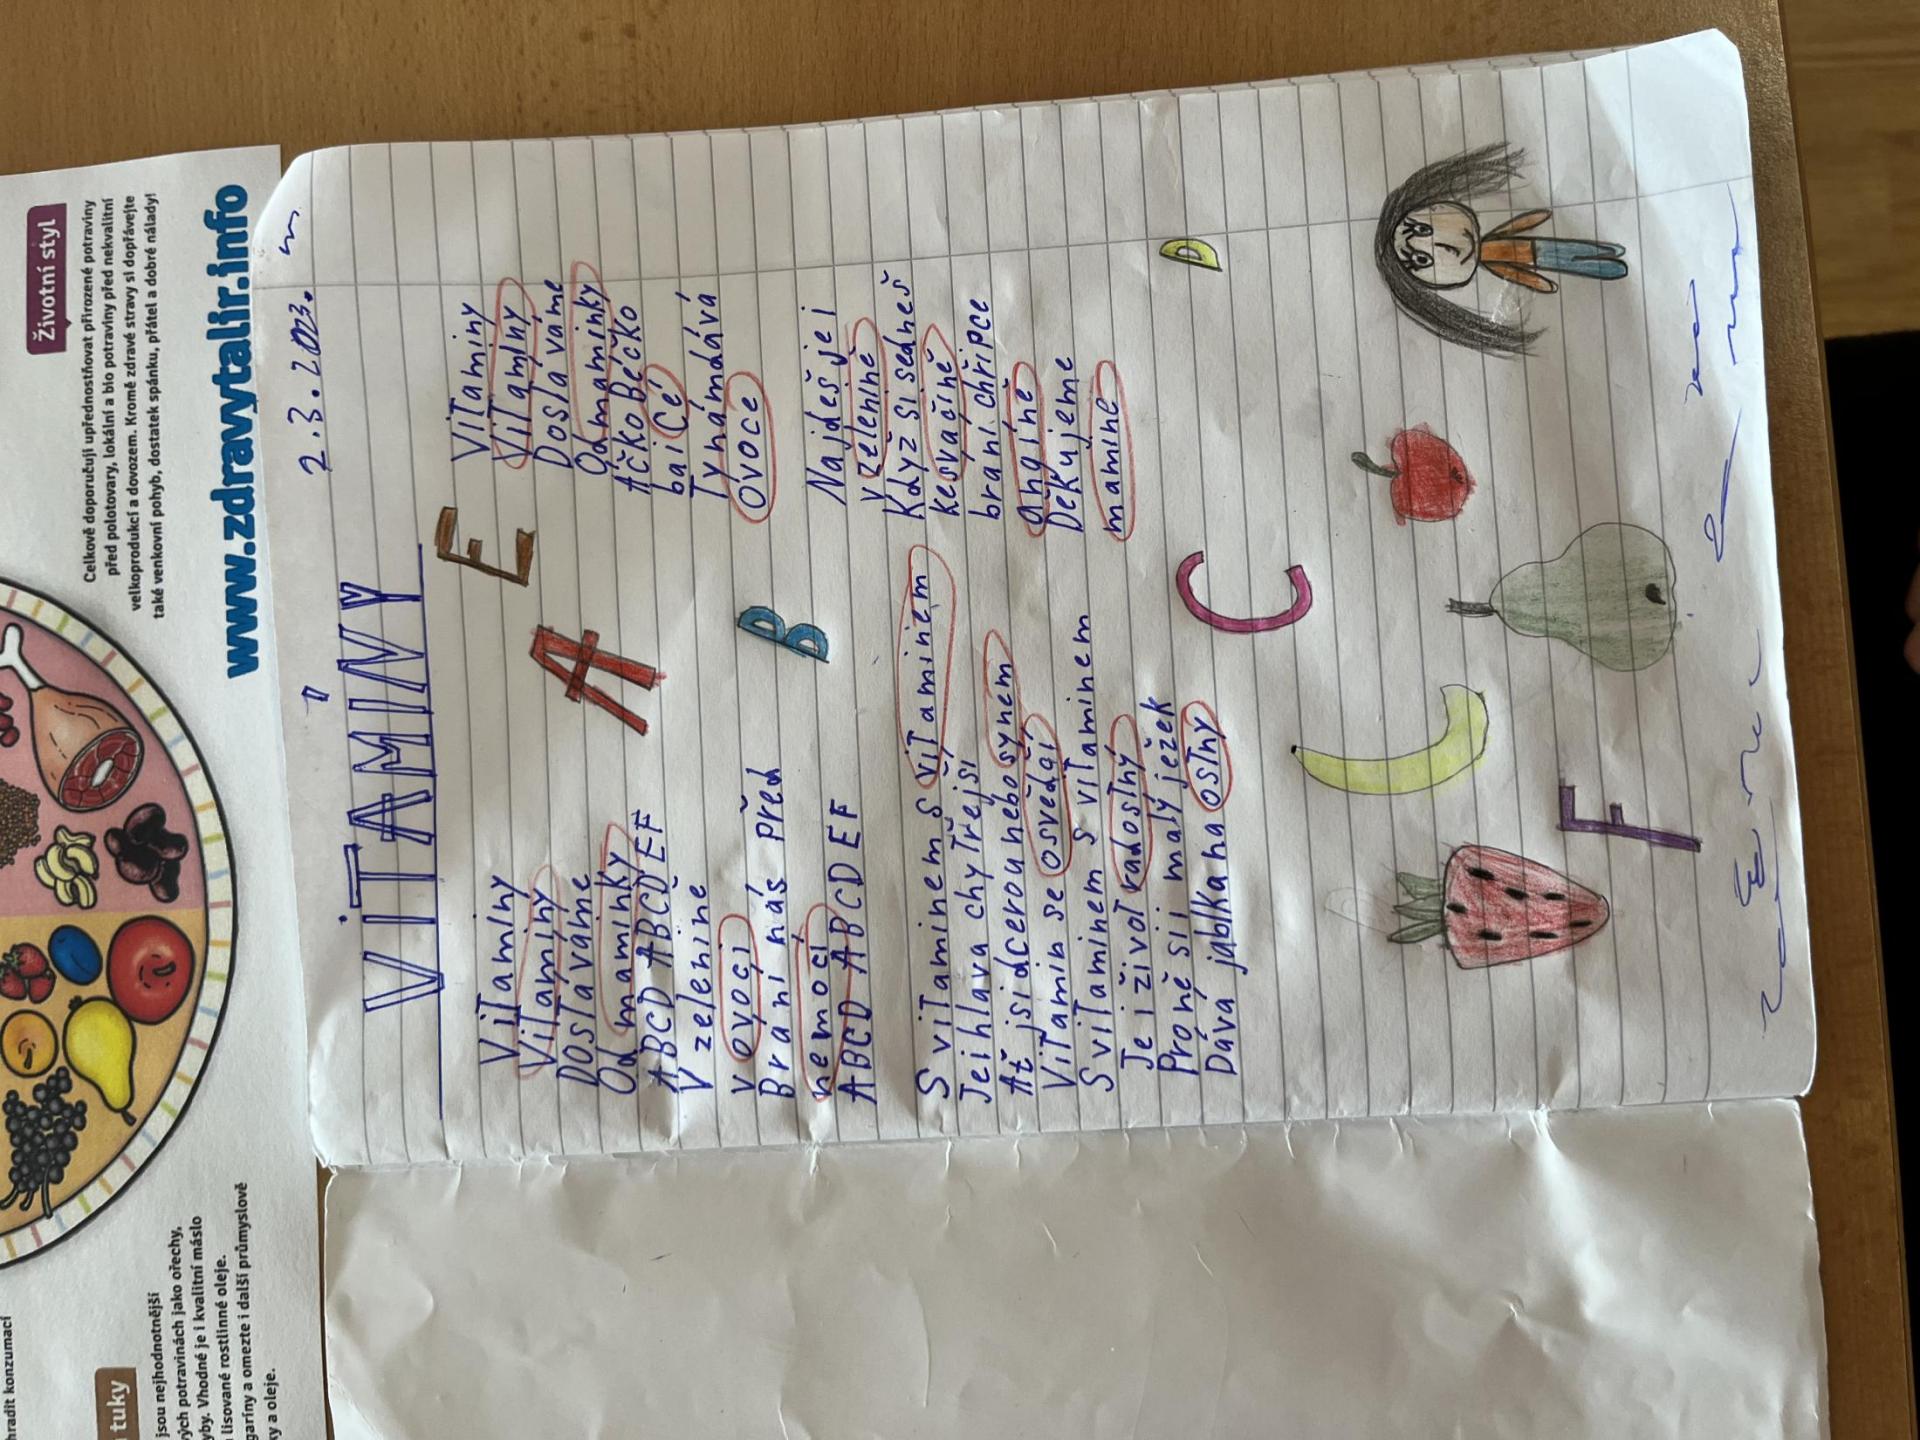 Životní styl
Celkově doporučuji upřednostňovat přirozené potraviny
před polotovary, lokální a bio potraviny před nekvalitní
velkoprodukcí a dovozem. Kromě zdravé stravy si dopřávejte
také venkovní pohyb, dostatek spánku, přátel a dobré nálady!
www.zdravytalir.info
hradit konzumací
tuky
jsou nejhodnotnější
vých potravinách jako ořechy,
yby. Vhodné je i kvalitní máslo
lisované rostlinné oleje.
garíny a omezte i další průmyslově
ky a oleje.
2.3.2023.
VITAMINY
Vitamíny
Vitamíny
Dostáváme
Od maminky
ABCD ABCD EF
V zelenině
v ovoci
Brání nás před
nemocí
ABCD ABCD EF
S vitaminem S vitaminem
Je ihlava chytřejší
Ať jsi dcerou nebo synem
Vitamin se osvědčí
S vitaminem s vitaminem
Je i život radostný
Pro ně si i malý ježek
Dává jablka na ostny
Vitaminy
Vitamíny
Dostáváme
Od maminky
Áčko Béčko
ba i Cé
Ty nám dává
Ovoce
Najdeš je i
v zelenině
Když si sedneš
ke svačině
brání chřipce
angíně
Děkujeme
mamině
E
A
B
C
D
F